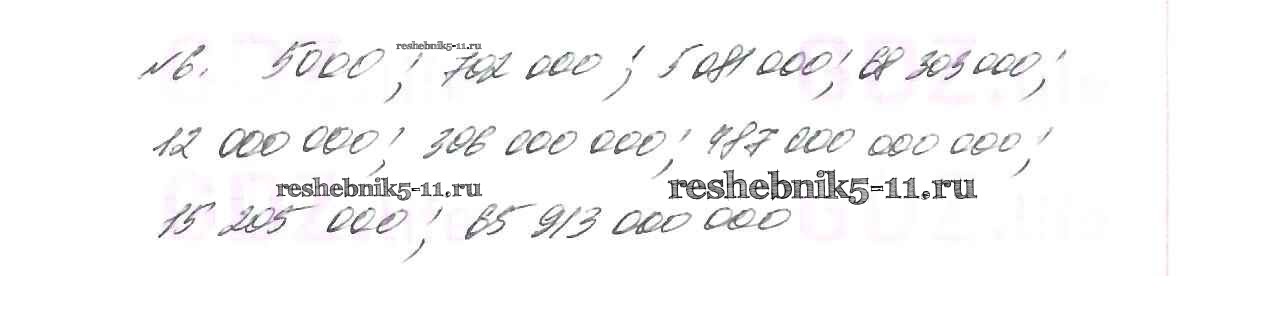 reshebnik5-11.ru
№6. 5000; 702 000; 5 081 000; 68 303 000;
12 000 000; 306 000 000; 487 000 000 000;
reshebnik5-11.ru reshebnik5-11.ru
15 205 000; 65 913 000 000